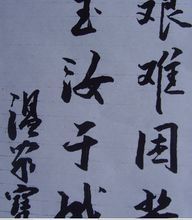 艰难困苦
玉汝于成
温家寶